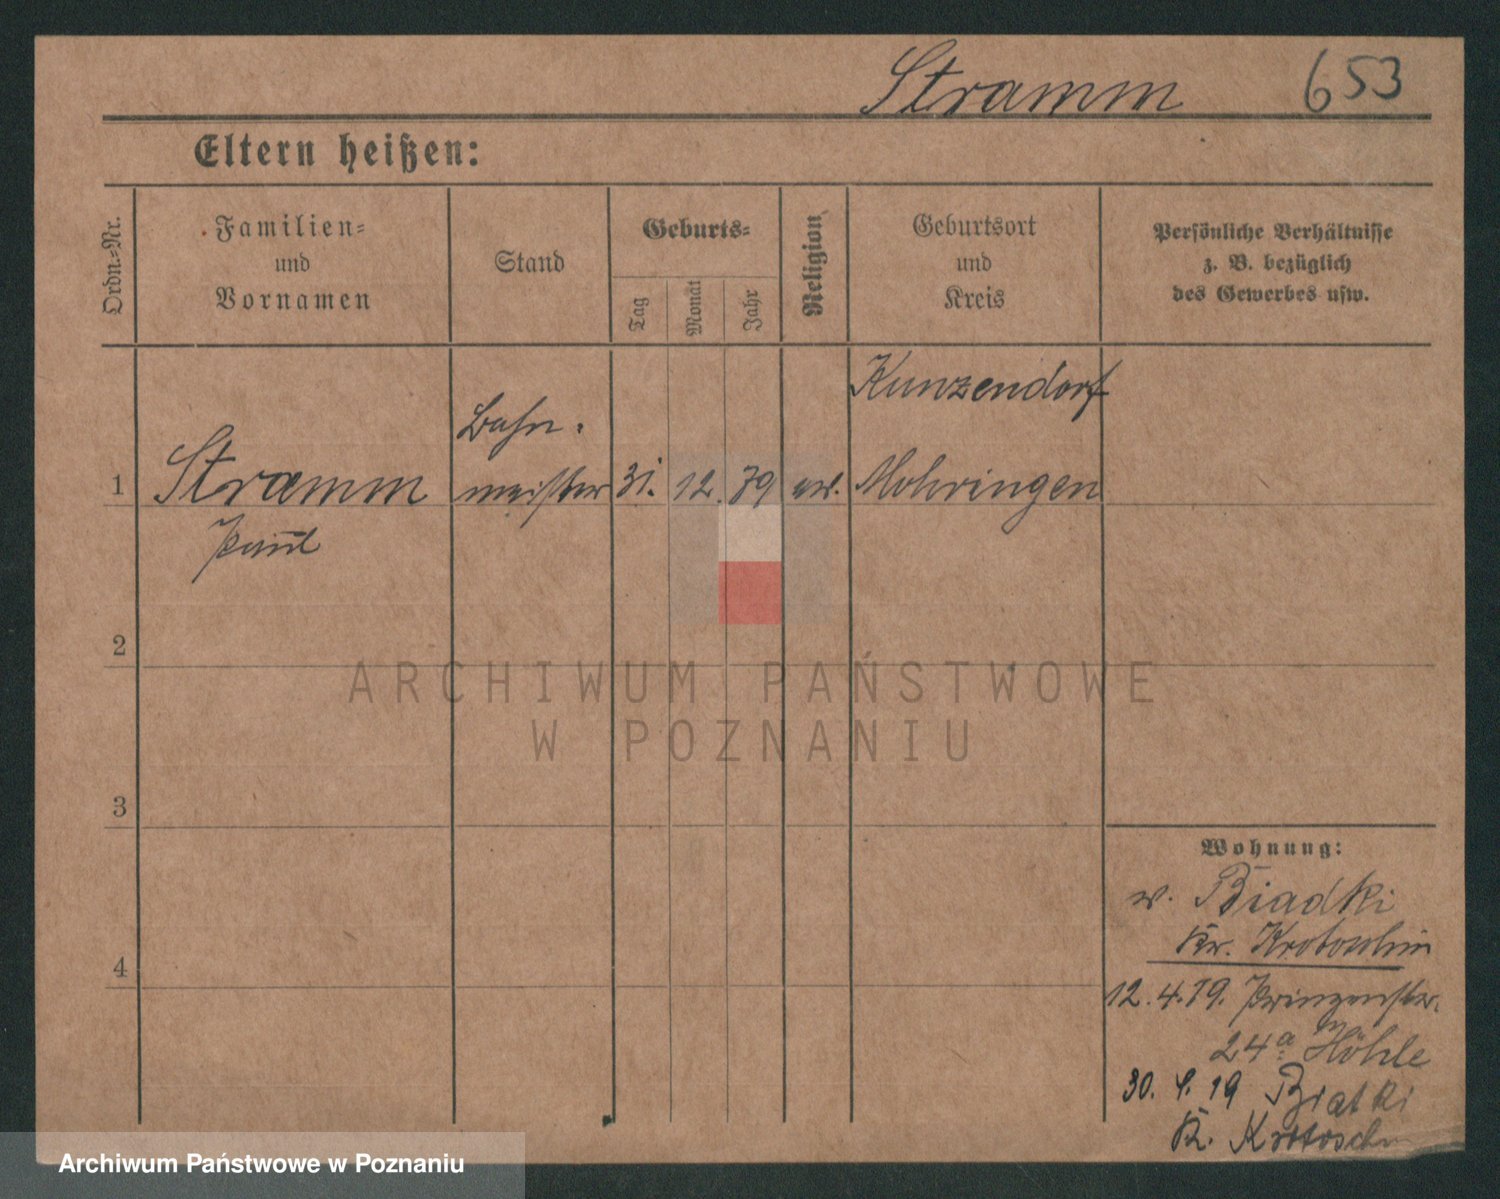 Stramm 653
Eltern heißen:
Ordn.-Nr.
Familien-
und
Vornamen
Stand
Geburts-
Tag
Monat
Jahr
Religion
Geburtsort
und
Kreis
Persönliche Verhältnisse
z. B. bezüglich
des Gewerbes usw.
Kunzendorf
Bahn-
1 Stramm meister 31. 12. 79 ev. Mohringen
Paul
2
3
4
Wohnung:
w. Biadki
Kr. Krotoschin
12.4.19. Prinzenstr.
24a Höhle
30. 4. 19 Biatki
K. Krotoschin
ARCHIWUM PAŃSTWOWE
W POZNANIU
Archiwum Państwowe w Poznaniu